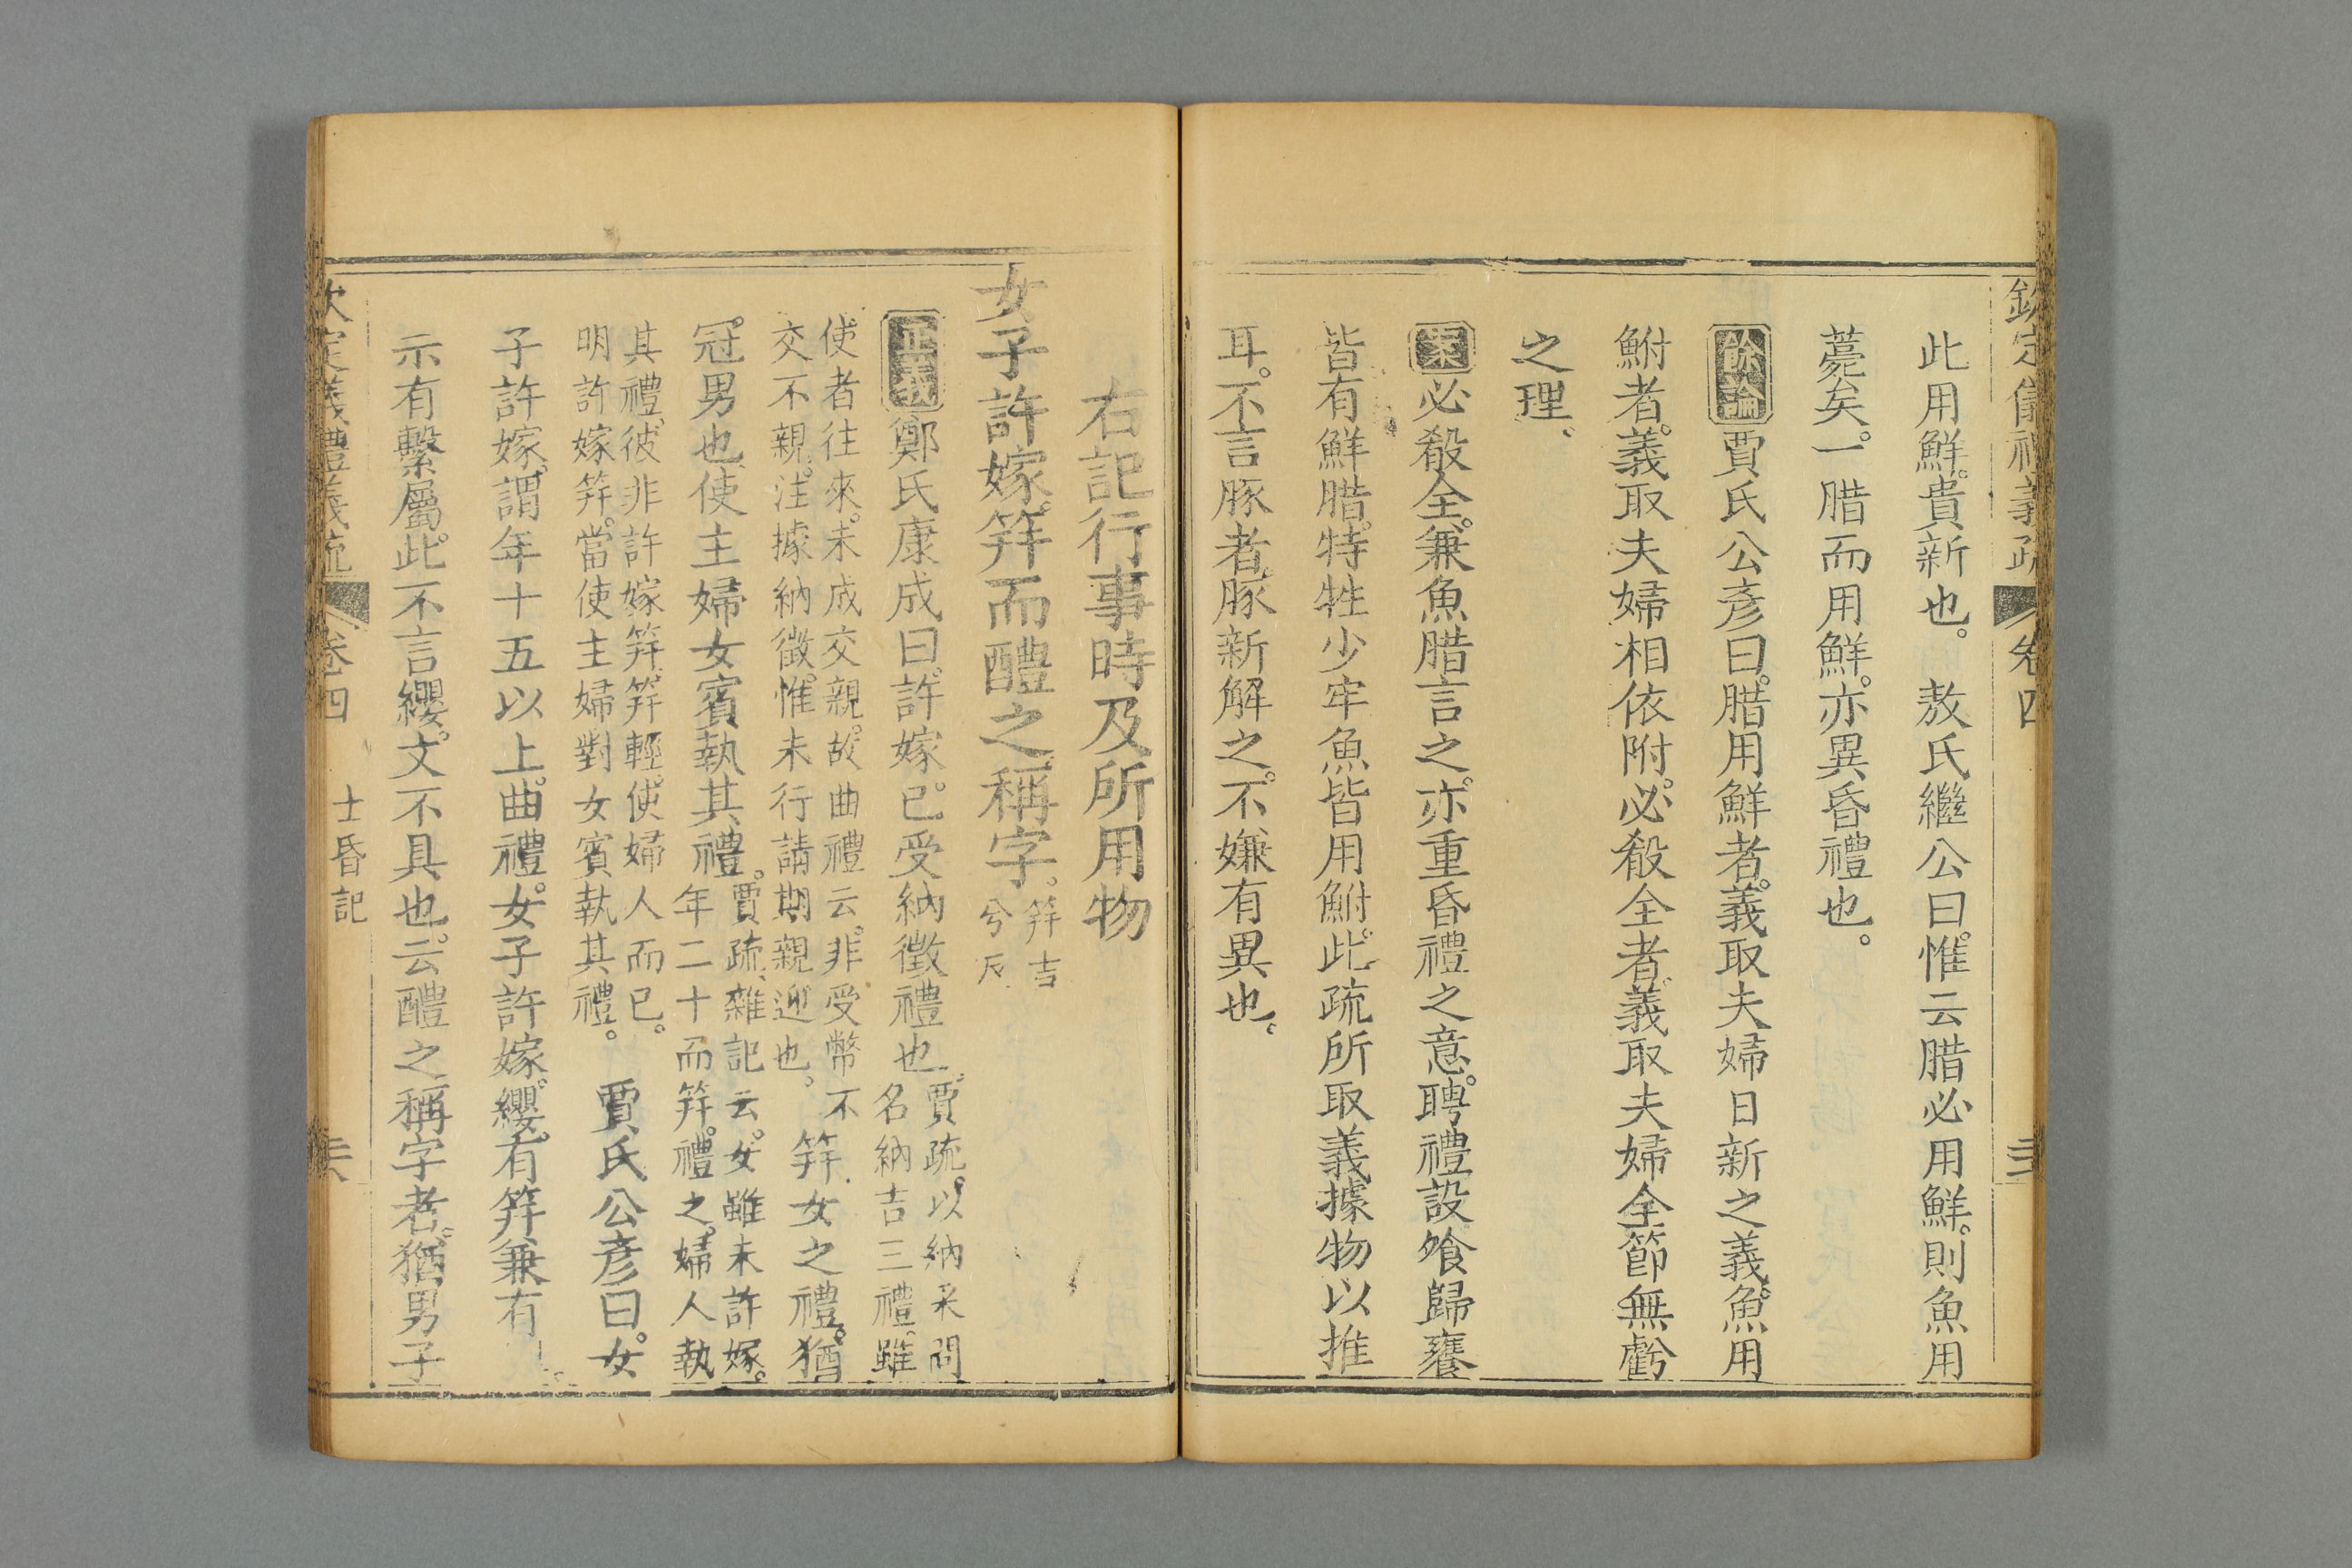 欽定儀禮義疏 卷四
此用鮮。貴新也。 敖氏繼公曰。惟云腊必用鮮。則魚用
薧矣。一腊而用鮮。亦異昏禮也。
餘論 賈氏公彥曰。腊用鮮者。義取夫婦日新之義。魚用
鮒者。義取夫婦相依附。必殽全者。義取夫婦全節無虧
之理、
案 必殽全。兼魚腊言之。亦重昏禮之意。聘禮設飧歸饔
皆有鮮腊。特牲少牢魚皆用鮒。此疏所取義據物以推
耳。不言豚者。豚新解之。不嫌有異也。
右記行事時及所用物
女子許嫁。筓而醴之。稱字。筓吉
兮反
正義 鄭氏康成曰。許嫁。已受納徵禮也。賈疏。以納采問
名納吉三禮。雖
使者往來。未成交親。故曲禮云。非受幣不
交不親。注據納徵。惟未行請期親迎也。 筓女之禮。猶
冠男也。使主婦女賓執其禮。賈疏。雜記云。女雖未許嫁。
年二十而筓。禮之。婦人執
其禮。彼非許嫁筓。筓輕。使婦人而已。
明許嫁筓。當使主婦對女賓執其禮。 賈氏公彥曰。女
子許嫁。謂年十五以上。曲禮。女子許嫁。纓。有筓兼有
示有繫屬。此不言纓。文不具也。云醴之稱字者。猶男子
卷四 士昏記